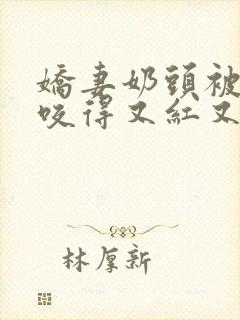 嬌妻奶頭被
咬得又紅又
林厚新